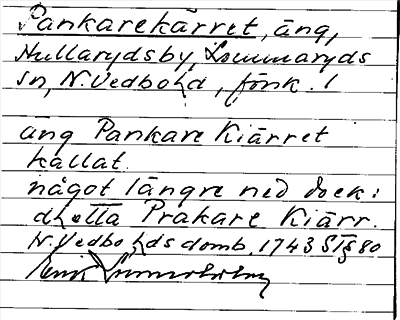 Pankarekärret, äng,
Hullarydsby, Lommaryds
sn, N. Vedbo hd, Jönk. l
äng Pankare Kiärret
kallat.
något längre ned dock:
dhetta Prakare Kiärr.
N. Vedbo hds domb. 1743 ST § 80